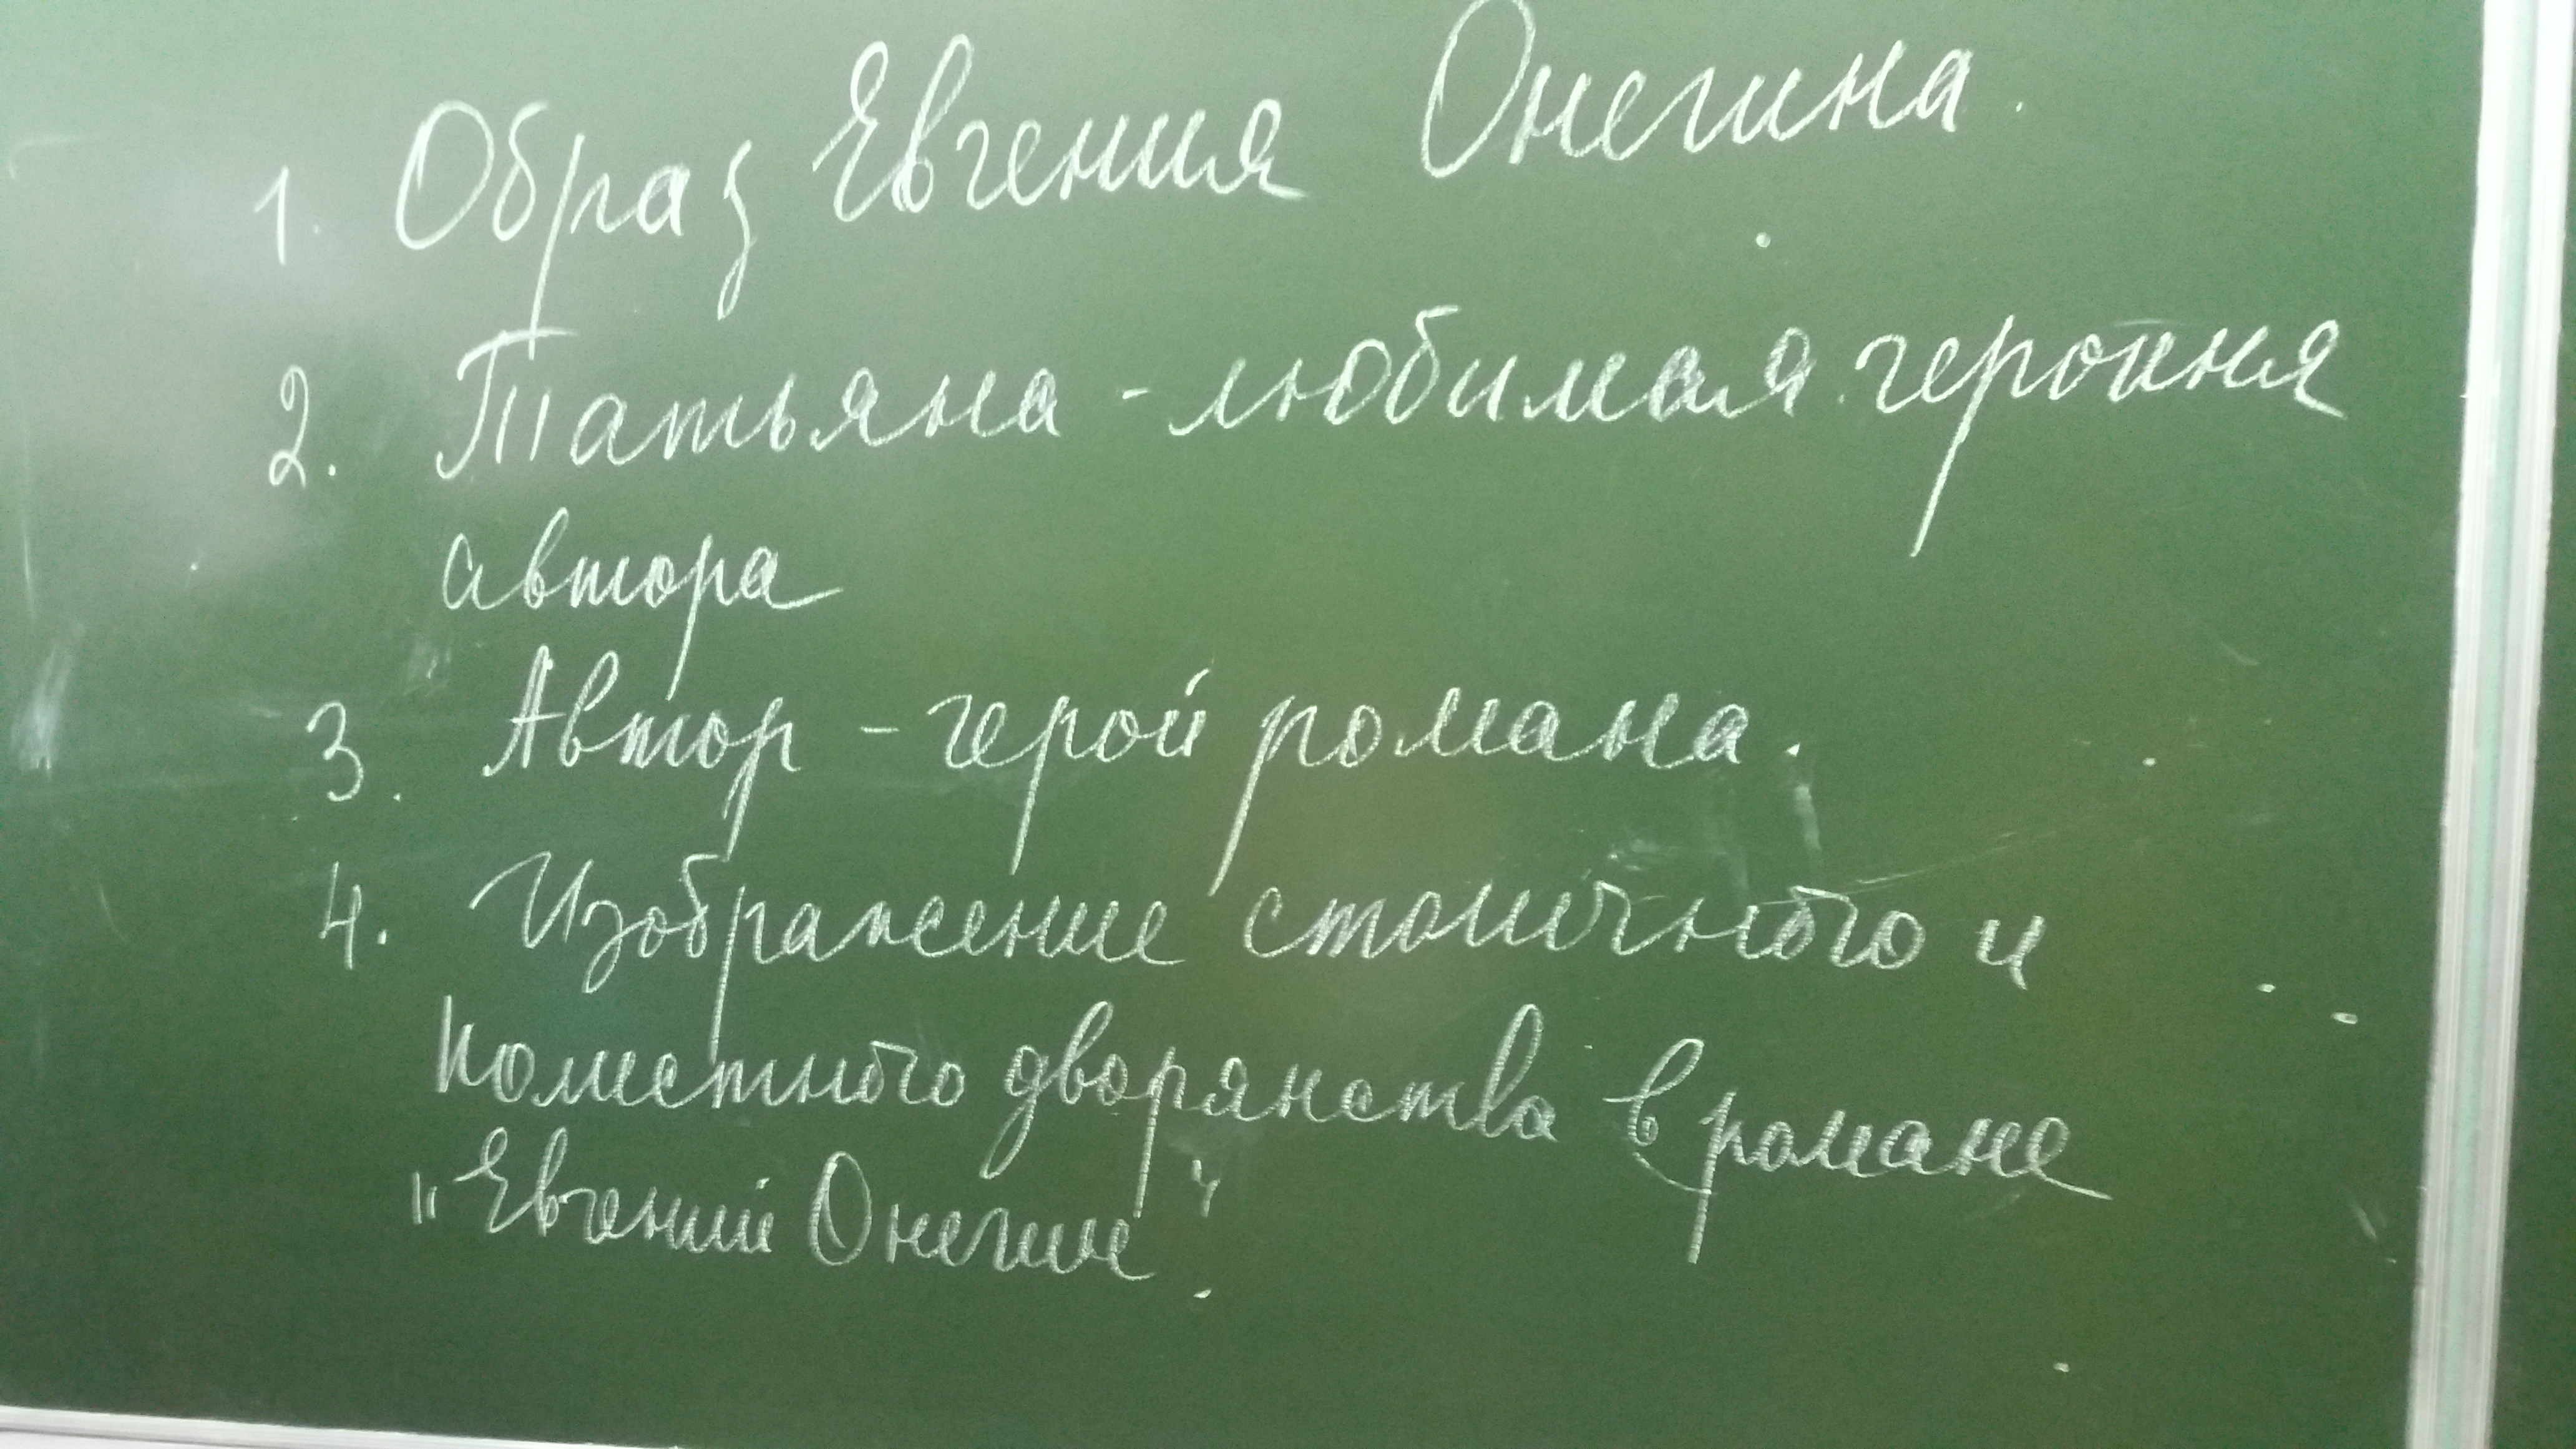 1. Образ Евгения Онегина.
2. Татьяна - любимая героиня
автора
3. Автор - герой романа.
4. Изображение столичного и
поместного дворянства в романе
"Евгений Онегин".